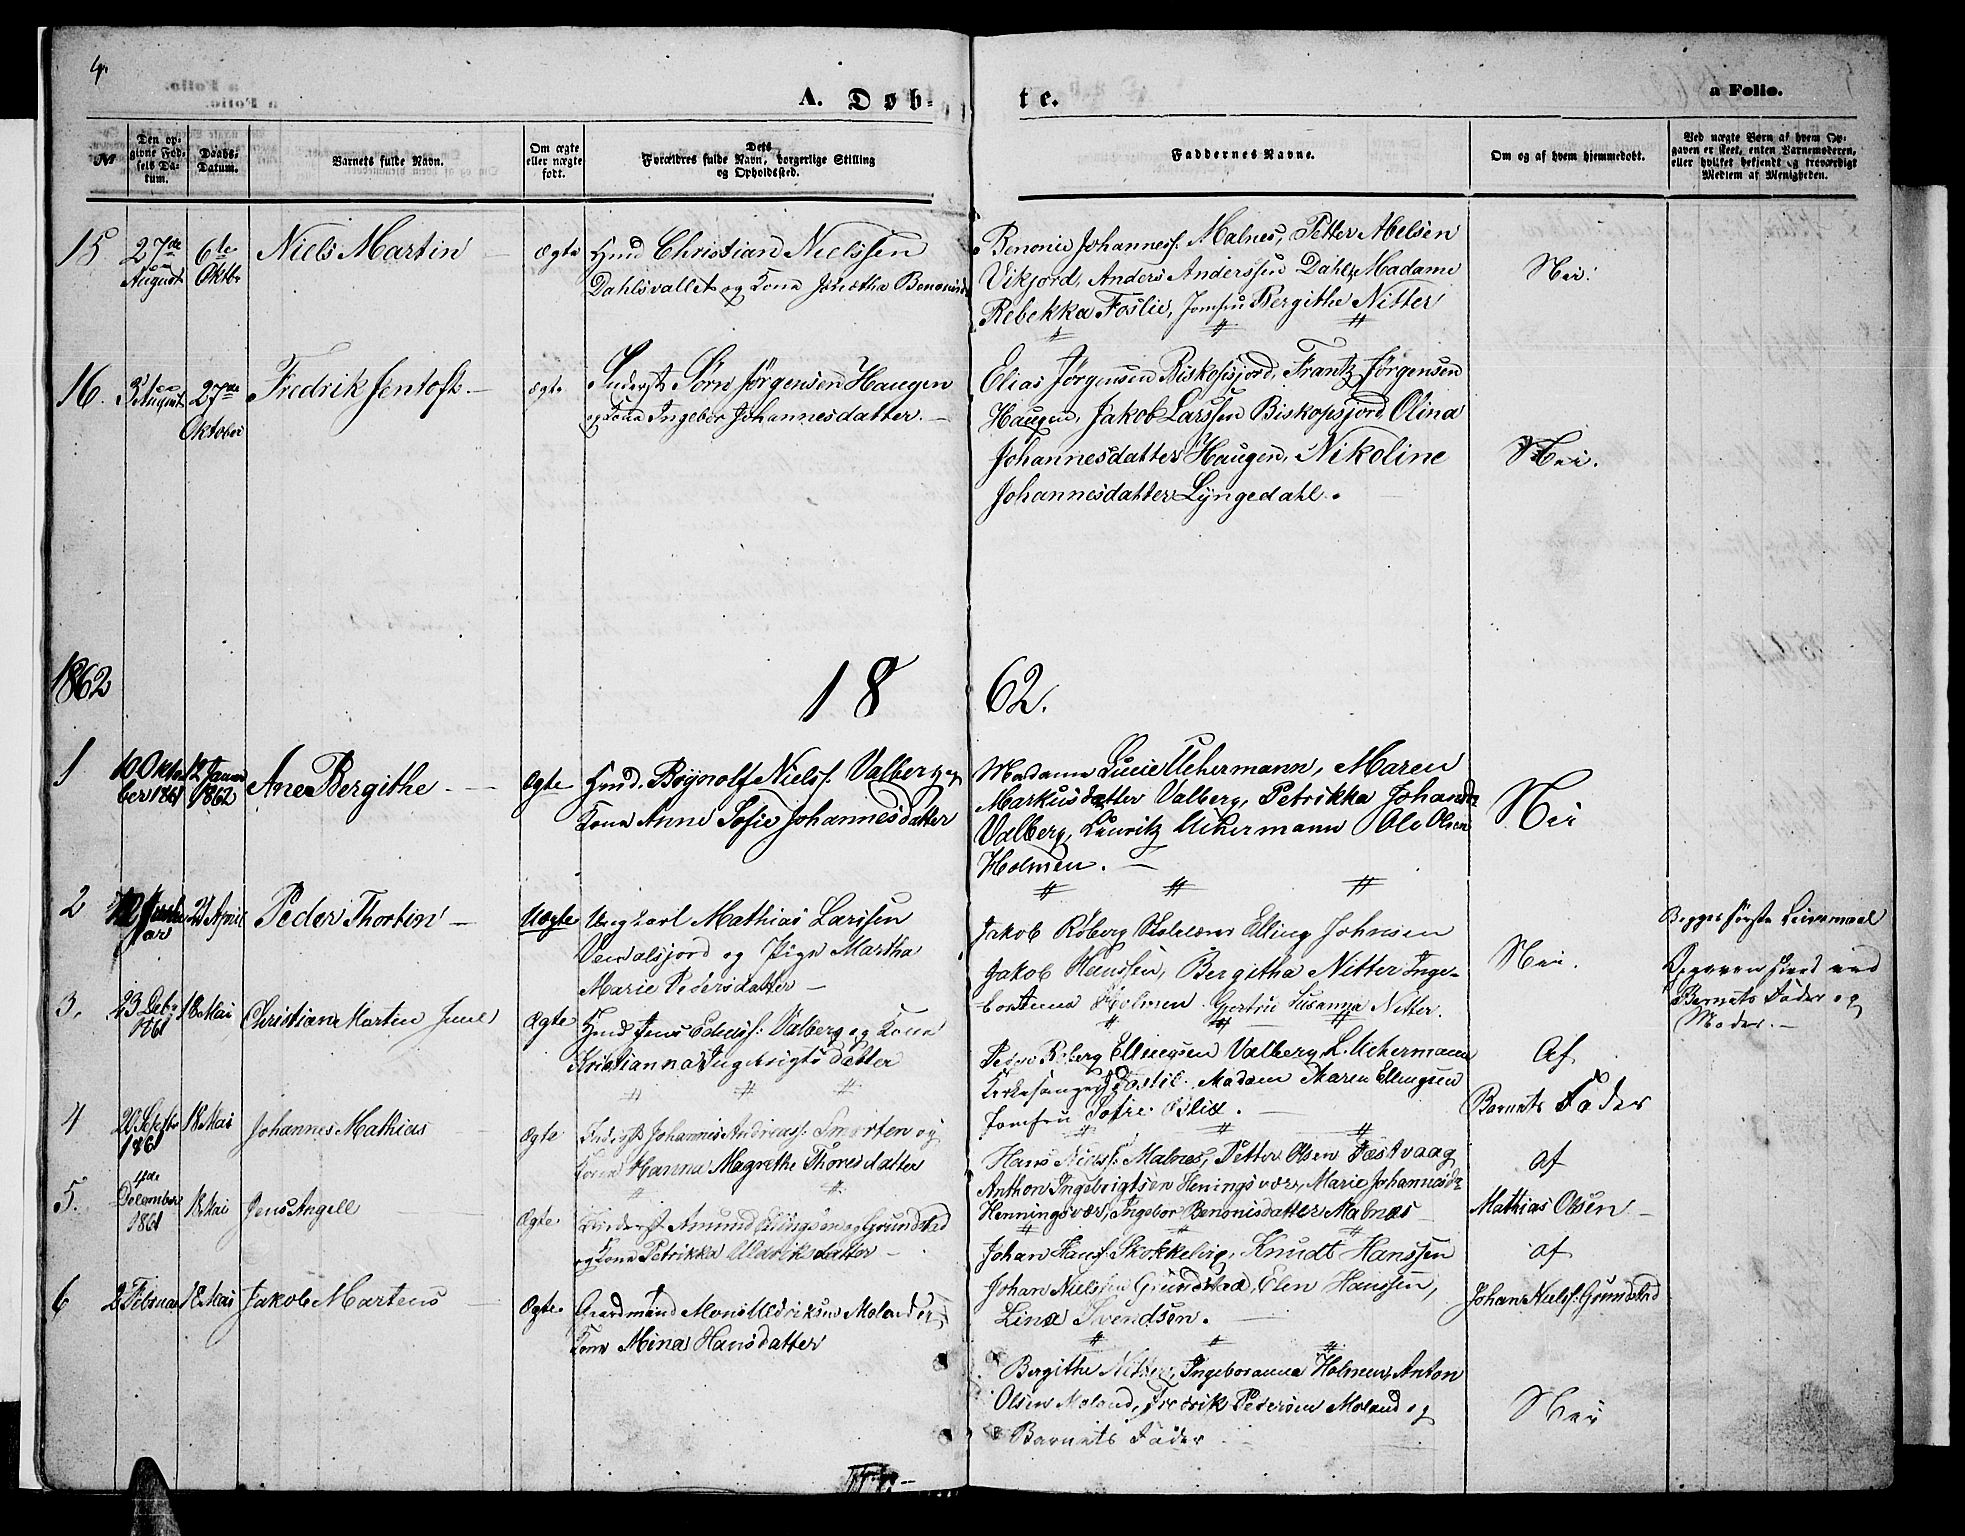 4.
A. Døb-
te.
a Folio.
№
Den op-
givne Fød-
sels Da-
tum.
Daabs-
Datum.
Barnets fulde Navn.
Om ægte
eller uægte
født.
Dets
Forældres fulde Navn, borgerlige Stilling
og Opholdssted.
Faddernes Navne.
Om og af hvem hjemmedøbt.
Ved uægte Børn af hvem Op-
gaven er skeet, enten Barnemoderen,
eller hvilket bekjendt og troværdigt
Medlem af Menigheden.
15
27de
August
6te
Oktbr
Niels Martin
ægte
Hmd Christian Nielssen
Dahlsvallet og Kone
Benonie Johannesf. Malnes, Petter Abelsen
Vikjord, Anders Anderssen Dahl, Madame
Rebekka Foslie, Jomfru Bergithe Nitter
Nei.
16.
31te
August
27de
Oktober
Fredrik Jentoft
ægte
Inderst Sørn Jørgensen Haugen
og Kone Ingebor Johannesdatter
Elias Jørgensen Biskopsjord, Frantz Jørgensen
Haugen, Jakob Larssen Biskopsjord, Olina
Johannesdatter Haugen, Nikoline
Johannesdatter Lyngedahl.
Nei.
1862
18
62.
1
10 Okto
ber 1861
12 Januar
1862
Ane Bergithe
Ægte
Hmd. Nielsf. Valberg og
Kone Anne Sofie Johannesdatter
Madame Lucie Uchermann, Maren
Markusdatter Valberg, Petrikka Johansd.
Valberg, Lauritz Uchermann Ole Olsen
Holmen.
Nei
2
21 April
Peder Thortin
Uægte
Ungkarl Mathias Larssen
Vendalsjord og Pige Martha
Marie Pedersdatter
Jakob Røberg Elling Johnsen
Jakob Hanssen, Bergitha Nitter Inge-
Holmen Gjertru Susanna Nitter.
Nei.
Begges første Leiermaal
Opgaven skeed ved
Barnets Fader og
Moder.
3.
23
1861
18 Mai
Christian Martin
Ægte
Hmd Jens Valberg og Kone
Kristianna Ingebrigtsdatter
Peder Røberg Ellingsen Valberg, L. Uchermann
Kirkesanger Madam Maren Ellingsen
Jomfru Sofie
Af
Barnets Fader
4
20 Septbr
1861
18 Mai
Johannes Mathias
Ægte
Inderst Johannes Andreasf. Smorten og
Kone Hanna Magrethe Thoresdatter
Hans Nielsf. Malnes, Petter Olsen Festvaag
Anthon Ingebrigtsen Heningsvær, Marie Johannesd.
Henningsvær, Ingebor Benonisdatter Malnes
af
Mathias Olsen
5.
4de
December
1861
18 Mai
Jens Angell
Ægte
Inderst Amund Ellingsen Grundstad
og Kone Petrikka Uldriksdatter
Johan Skokkelvig, Knudt Hanssen
Johan Nielssen Grundstad, Elen Hanssen,
Lina Svendsen.
af
Johan Nielsf. Grundstad
6
2 Februar
18 Mai
Jakob Martens
Ægte
Gaardmand Mons Uldriksen Moland og
Kone Mina Hansdatter
Bergithe Nitter, Ingeboranna Holmen, Anton
Olsen Moland, Fredrik Pedersen Moland og
Barnets Fader
Nei